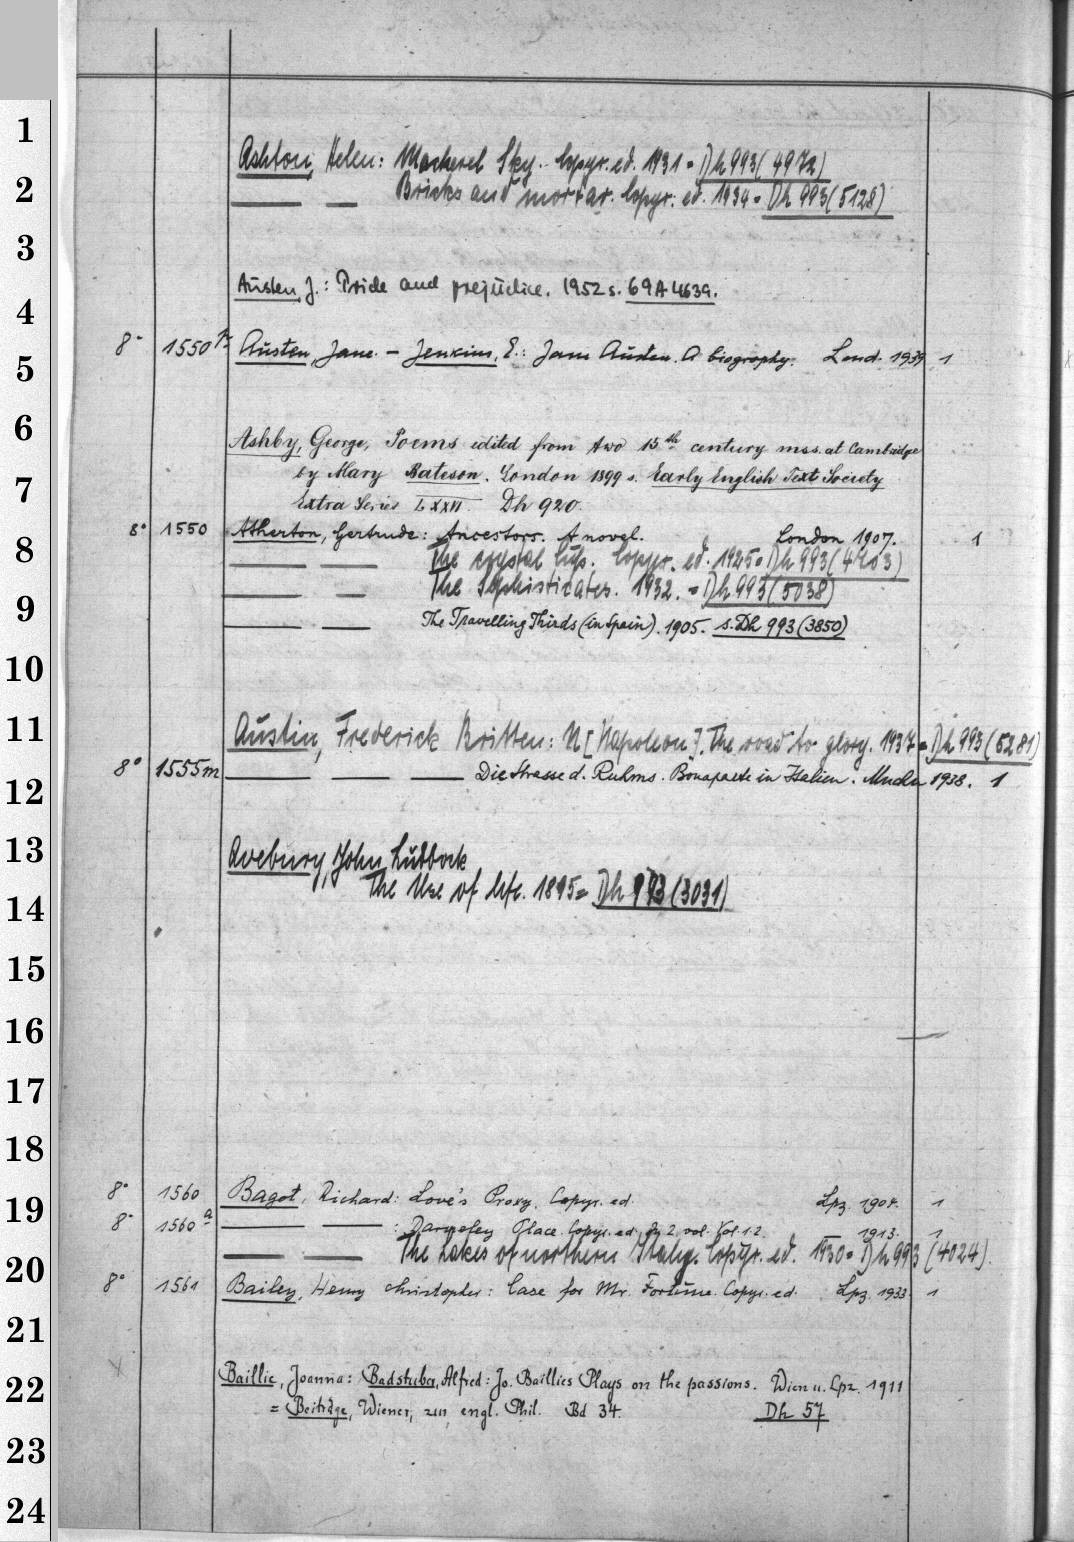 1
Ashton, Helen: Mackerel Sky. Copyr. ed. 1931 = Dh 993 (4972)
2
Bricks and mortar. Copyr. ed. 1934 = Dh 993 (5128)
3
Austen, J.: Pride and prejudice. 1952 s. 69 A 4639.
4
8° 1550 Austen, Jane. - Jenkins, E.: Jane Austen. A biography. Lond. 1939 1
5
6
Ashby, George, Poems edited from two 15th century mss. at Cambridge
by Mary Bateson. London 1899 s. Early English Text Society
7
Extra Series LXXVI. Dh 920.
8° 1550 Atherton, Gertrude: Ancestors. A novel. London 1907. 1
8
The crystal cup. Copyr. ed. 1925 = Dh 993 (4703)
The Sophisticates. 1932. = Dh 993 (5038)
9
The Travelling Thirds (in Spain). 1905. s. Dh 993 (3850)
10
11
Austin, Frederick Britten: N [Napoleon]. The road to glory. 1937 = Dh 993 (5281)
8° 1555m Die Strasse d. Ruhms. Bonaparte in Italien. 1938. 1
12
13
Avebury, John Lubbock
The Use of life. 1895 = Dh 993 (3031)
14
15
16
17
18
8° 1560 Bagot, Richard: Love's Proxy. Copyr. ed. Lpz. 1904. 1
19
8° 1560 a : Darneley Place. Copyr. ed. In 2 vol. Vol 1.2. 1913. 1
The Lakes of northern Italy. Copyr. ed. 1930 = Dh 993 (4024).
20
8° 1561 Bailey, Henry Christopher: Case for Mr. Fortune. Copyr. ed. Lpz. 1933. 1
21
22
Baillie, Joanna: Badstuber, Alfred: Jo. Baillies Plays on the passions. Wien u. Lpz. 1911
= Beiträge, Wiener, zur engl. Phil. Bd 34. Dh 57
23
24